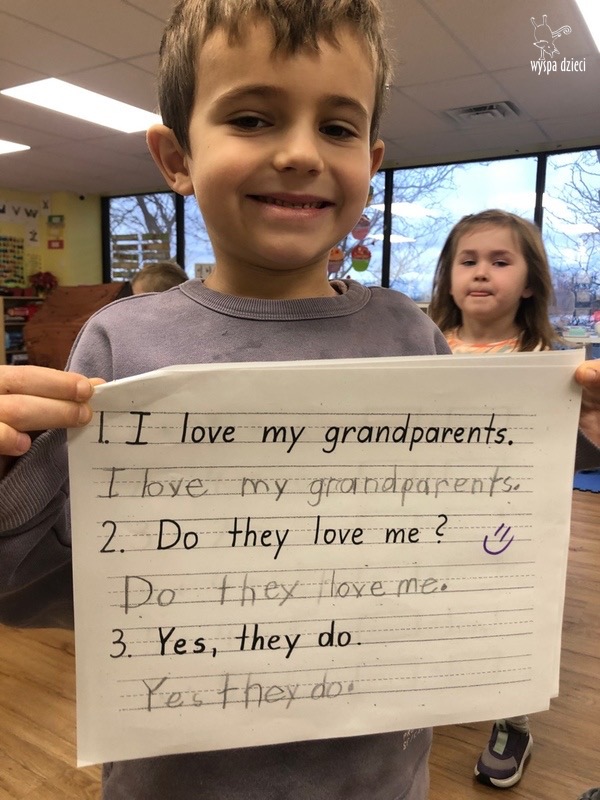 wyspa dzieci
V W
Z
1. I love my grandparents.
I love my grandparents.
2. Do they love me?
Do they love me.
3. Yes, they do.
Yes they do.